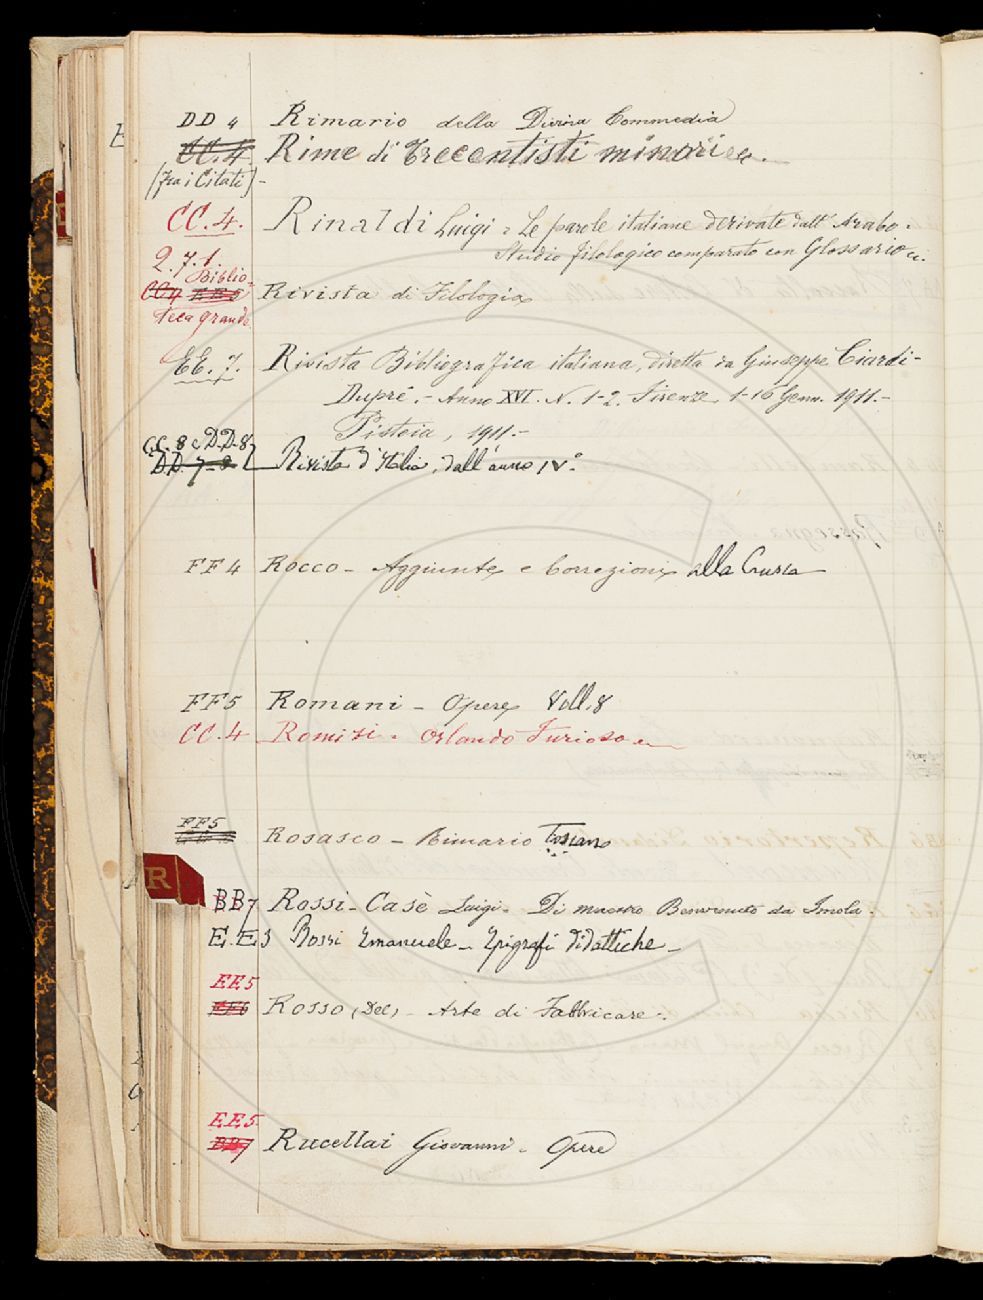 DD 4 Rimario della Divina Commedia
CC.4 Rime di Trecentisti minori
(fra i Citati)-
CC.4. Rinaldi Luigi = Le parole italiane derivate dall' Arabo.
Studio filologico comparato con Glossario
2.7.1.
Biblio-
CC4 EE5 Rivista di Filologia
teca grande
EE.7. Rivista Bibliografica italiana, diretta da Giuseppe Ciardi-
Dupré. - Anno XVI. N. 1-2. Firenze, 1-16 Genn. 1911.-
Pistoia, 1911.-
CC.8 e D.D.8
D.D. 7-8 Rivista d'Italia, dall'anno IV°.
FF4 Rocco - Aggiunte e Correzioni alla Crusca
FF5 Romani - Opere Voll. 8
CC.4 Romizi - Orlando Furioso
FF5
Rosasco - Rimario Toscano
R
BB7 Rossi-Casè Luigi. Di maestro Benvenuto da Imola.
E.E3 Rossi Emanuele - Epigrafi didattiche -
EE5
EE6 Rosso (Del) - Arte di Fabbricare.
EE5
BB7 Rucellai Giovanni - Opere